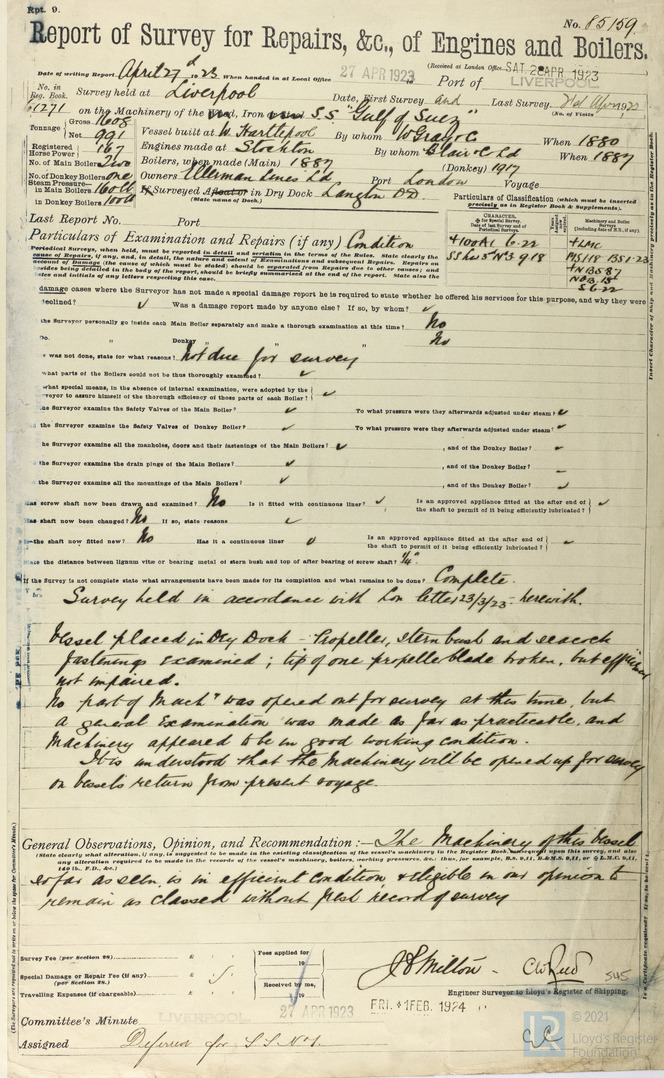 Rpt. 9.
No. 85159
Report of Survey for Repairs, &c., of Engines and Boilers.
(Received at London Office SAT. 28 APR 1923
Date of writing Report April 27th 1923 When handed in at Local Office 27 APR 1923 Port of LIVERPOOL
No. in Reg. Book. Survey held at Liverpool Date, First Survey and Last Survey
61271 on the Machinery of the Iron S.S. "Gulf of Suez" (No. of Visits)
Tonnage Gross 1608
Net 991 Vessel built at W. Hartlepool By whom W Gray & Co When 1880
Registered Horse Power 167 Engines made at Stockton By whom Blair & Co Ld When 1887
No. of Main Boilers Two Boilers, when made (Main) 1887 (Donkey) 1917
No. of Donkey Boilers one Owners Ellerman Lines Ld Port London Voyage
Steam Pressure in Main Boilers 160 lb If Surveyed Afloat or in Dry Dock Langton DD.
in Donkey Boilers 100 lb (State name of Dock.)
Particulars of Classification (which must be inserted precisely as in Register Book & Supplements).
Last Report No. Port
Particulars of Examination and Repairs (if any) Condition
+100A1 6.22
SS No 3 9.18
+LMC
MS 1.18 BS 1.23
+NB 5 87
S 6.22
Periodical Surveys, when held, must be reported in detail and seriatim in the terms of the Rules. State clearly the
cause of Repairs, if any, and, in detail, the nature and extent of Examinations and subsequent Repairs. Repairs on
account of Damage (the cause of which must be stated) should be separated from Repairs due to other causes; and
besides being detailed in the body of the report, should be briefly summarised at the end of the report. State also the
dates and initials of any letters respecting this case.
damage cases where the Surveyor has not made a special damage report he is required to state whether he offered his services for this purpose, and why they were
declined? Was a damage report made by anyone else? If so, by whom?
the Surveyor personally go inside each Main Boiler separately and make a thorough examination at this time? No
Do. " Donkey " " No
was not done, state for what reasons? Not due for survey
what parts of the Boilers could not be thus thoroughly examined?
what special means, in the absence of internal examination, were adopted by the
veyor to assure himself of the thorough efficiency of those parts of each Boiler?
the Surveyor examine the Safety Valves of the Main Boiler? To what pressure were they afterwards adjusted under steam?
the Surveyor examine the Safety Valves of Donkey Boiler? To what pressure were they afterwards adjusted under steam?
the Surveyor examine all the manholes, doors and their fastenings of the Main Boilers? , and of the Donkey Boiler?
the Surveyor examine the drain plugs of the Main Boilers? , and of the Donkey Boiler?
the Surveyor examine all the mountings of the Main Boilers? , and of the Donkey Boiler?
Has screw shaft now been drawn and examined? No Is it fitted with continuous liner? Is an approved appliance fitted at the after end of
the shaft to permit of it being efficiently lubricated?
Has shaft now been changed? No If so, state reasons
Is the shaft now fitted new? No Has it a continuous liner Is an approved appliance fitted at the after end of
the shaft to permit of it being efficiently lubricated?
State the distance between lignum vitæ or bearing metal of stern bush and top of after bearing of screw shaft? ¼"
If the Survey is not complete state what arrangements have been made for its completion and what remains to be done? Complete.
Survey held in accordance with Lon letter, 23/3/23 - herewith.
Vessel placed in Dry Dock - Propeller, stern bush and seacock
fastenings examined; tip of one propeller blade broken, but efficiency
not impaired.
No part of Machy was opened out for survey at this time, but
a general Examination was made as far as practicable, and
Machinery appeared to be in good working condition.
It is understood that the Machinery will be opened up for survey
on vessels return from present voyage.
General Observations, Opinion, and Recommendation :— The Machinery of this Vessel
(State clearly what alteration, if any, is suggested to be made in the existing classification of the vessel's machinery in the Register Book, consequent upon this survey, and also
any alteration required to be made in the records of the vessel's machinery, boilers, working pressures, &c.: thus, for example, B.S. 9,11, B.&M.S. 9,11, or L.M.C. 9,11,
140 lb., F.D., &c.)
so far as seen, is in efficient condition & eligible in our opinion to
remain as classed without fresh record of survey
Survey Fee (per Section 28) £
Special Damage or Repair Fee (if any) £
(per Section 28.)
Travelling Expenses (if chargeable) £
Fees applied for
19
Received by me,
19
Engineer Surveyor to Lloyd's Register of Shipping.
LIVERPOOL 27 APR 1923 FRI. 1 FEB. 1924
Committee's Minute
Assigned Deferred for S.S. No 1.
© 2021
Lloyd's Register
Foundation